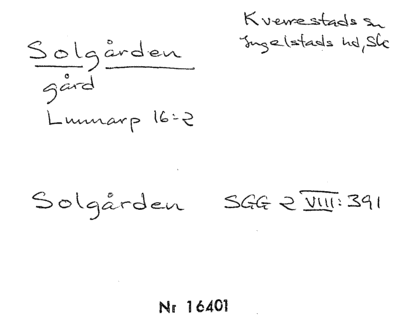 Solgården
Kverrestads sn
Ingelstads hd, Sk
gård
Lunnarp 16:2
Solgården SGG 2 VIII: 391
Nr 16401